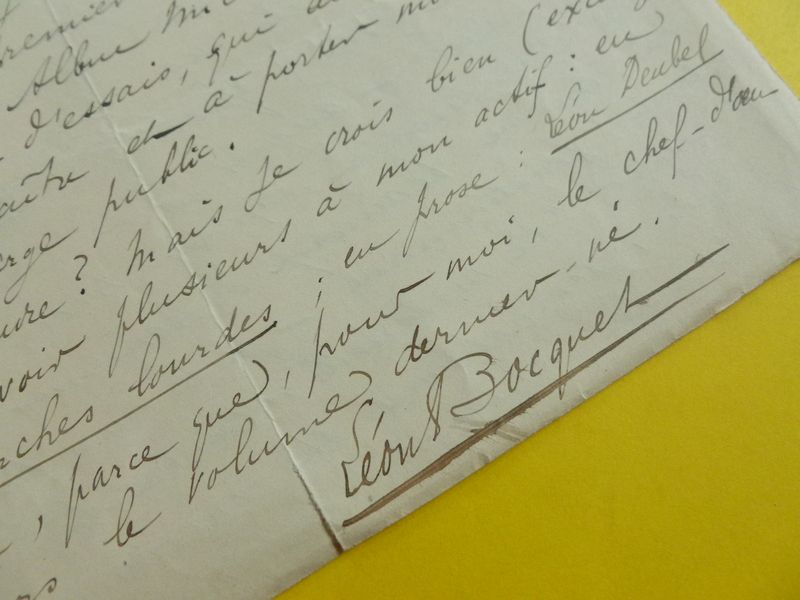 premier
Album
d'essais, qui
et à porter
public.
? Mais je crois bien
voir plusieurs à mon actif : en
lourdes ; en prose : Léon Deubel
, parce que, pour moi, le chef-d'œu
le volume dernier-né.
Léon Bocquet